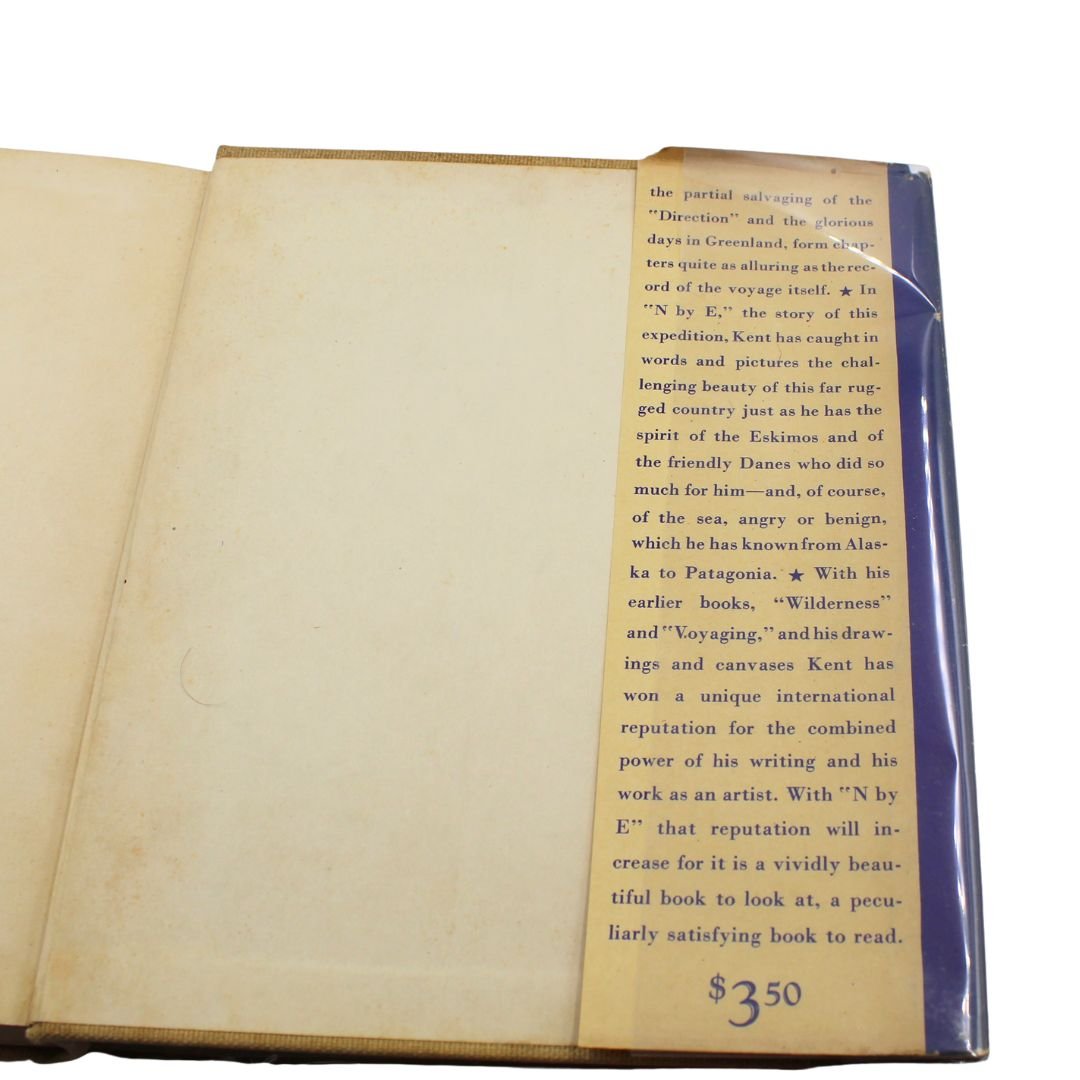 the partial salvaging of the
"Direction" and the glorious
days in Greenland, form chap-
ters quite as alluring as the rec-
ord of the voyage itself. ★ In
"N by E," the story of this
expedition, Kent has caught in
words and pictures the chal-
lenging beauty of this far rug-
ged country just as he has the
spirit of the Eskimos and of
the friendly Danes who did so
much for him—and, of course,
of the sea, angry or benign,
which he has known from Alas-
ka to Patagonia. ★ With his
earlier books, “Wilderness”
and "Voyaging," and his draw-
ings and canvases Kent has
won a unique international
reputation for the combined
power of his writing and his
work as an artist. With "N by
E" that reputation will in-
crease for it is a vividly beau-
tiful book to look at, a pecu-
liarly satisfying book to read.
$3.50